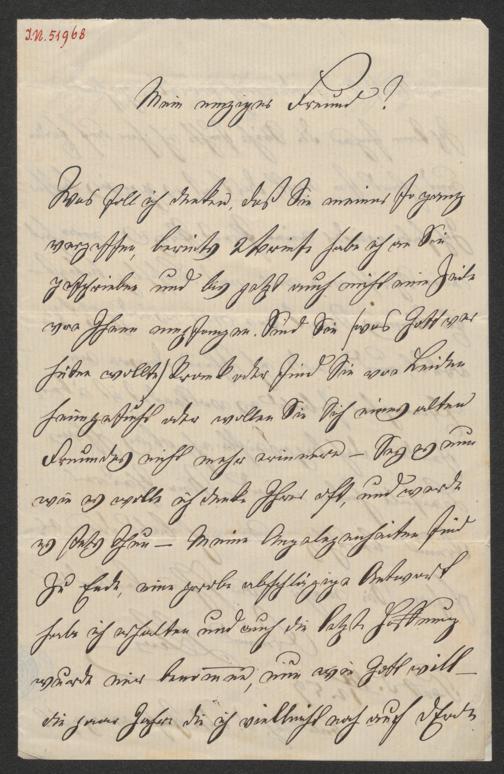 I.N. 51968
Mein einziger Freund!
Was soll ich denken, daß Sie meiner so ganz
vergessen, bereits 2 Briefe habe ich an Sie
geschrieben und bis jetzt auch nicht eine Zeile
von Ihnen empfangen. Sind Sie (was Gott ver
hüten wolle) krank oder sind Sie von Leiden
heimgesucht oder wollen Sie Sich eines alten
Freundes nicht mehr erinnern – Sey es nun
wie es wolle ich denke Ihrer oft, und werde
es stets thun – Meine Angelegenheiten sind
zu Ende, eine grobe abschlägige Antwort
habe ich erhalten und auch die letzte Hoffnung
wurde mir benommen, nun wie Gott will –
die paar Jahre die ich vielleicht noch auf Erde